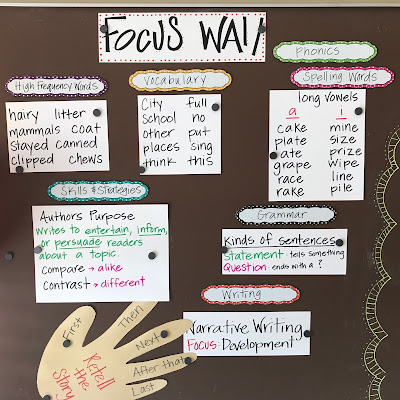 FOCUS WAll
Phonics
High Frequency Words
Vocabulary
Spelling Words
hairy litter
mammals coat
stayed canned
clipped chews
City full
School no
other put
places sing
think this
long Vowels
a i
cake mine
plate size
ate prize
grape wipe
race line
rake pile
Skills & Strategies
Authors Purpose
Writes to entertain, inform,
or persuade readers
about a topic.
Compare → alike
Contrast → different
Grammar
Kinds of sentences
Statement tells something
Question ends with a ?
Writing
Narrative Writing
FOCUS: Development
First
Then
Next
After that
Last
Retell
the
Story